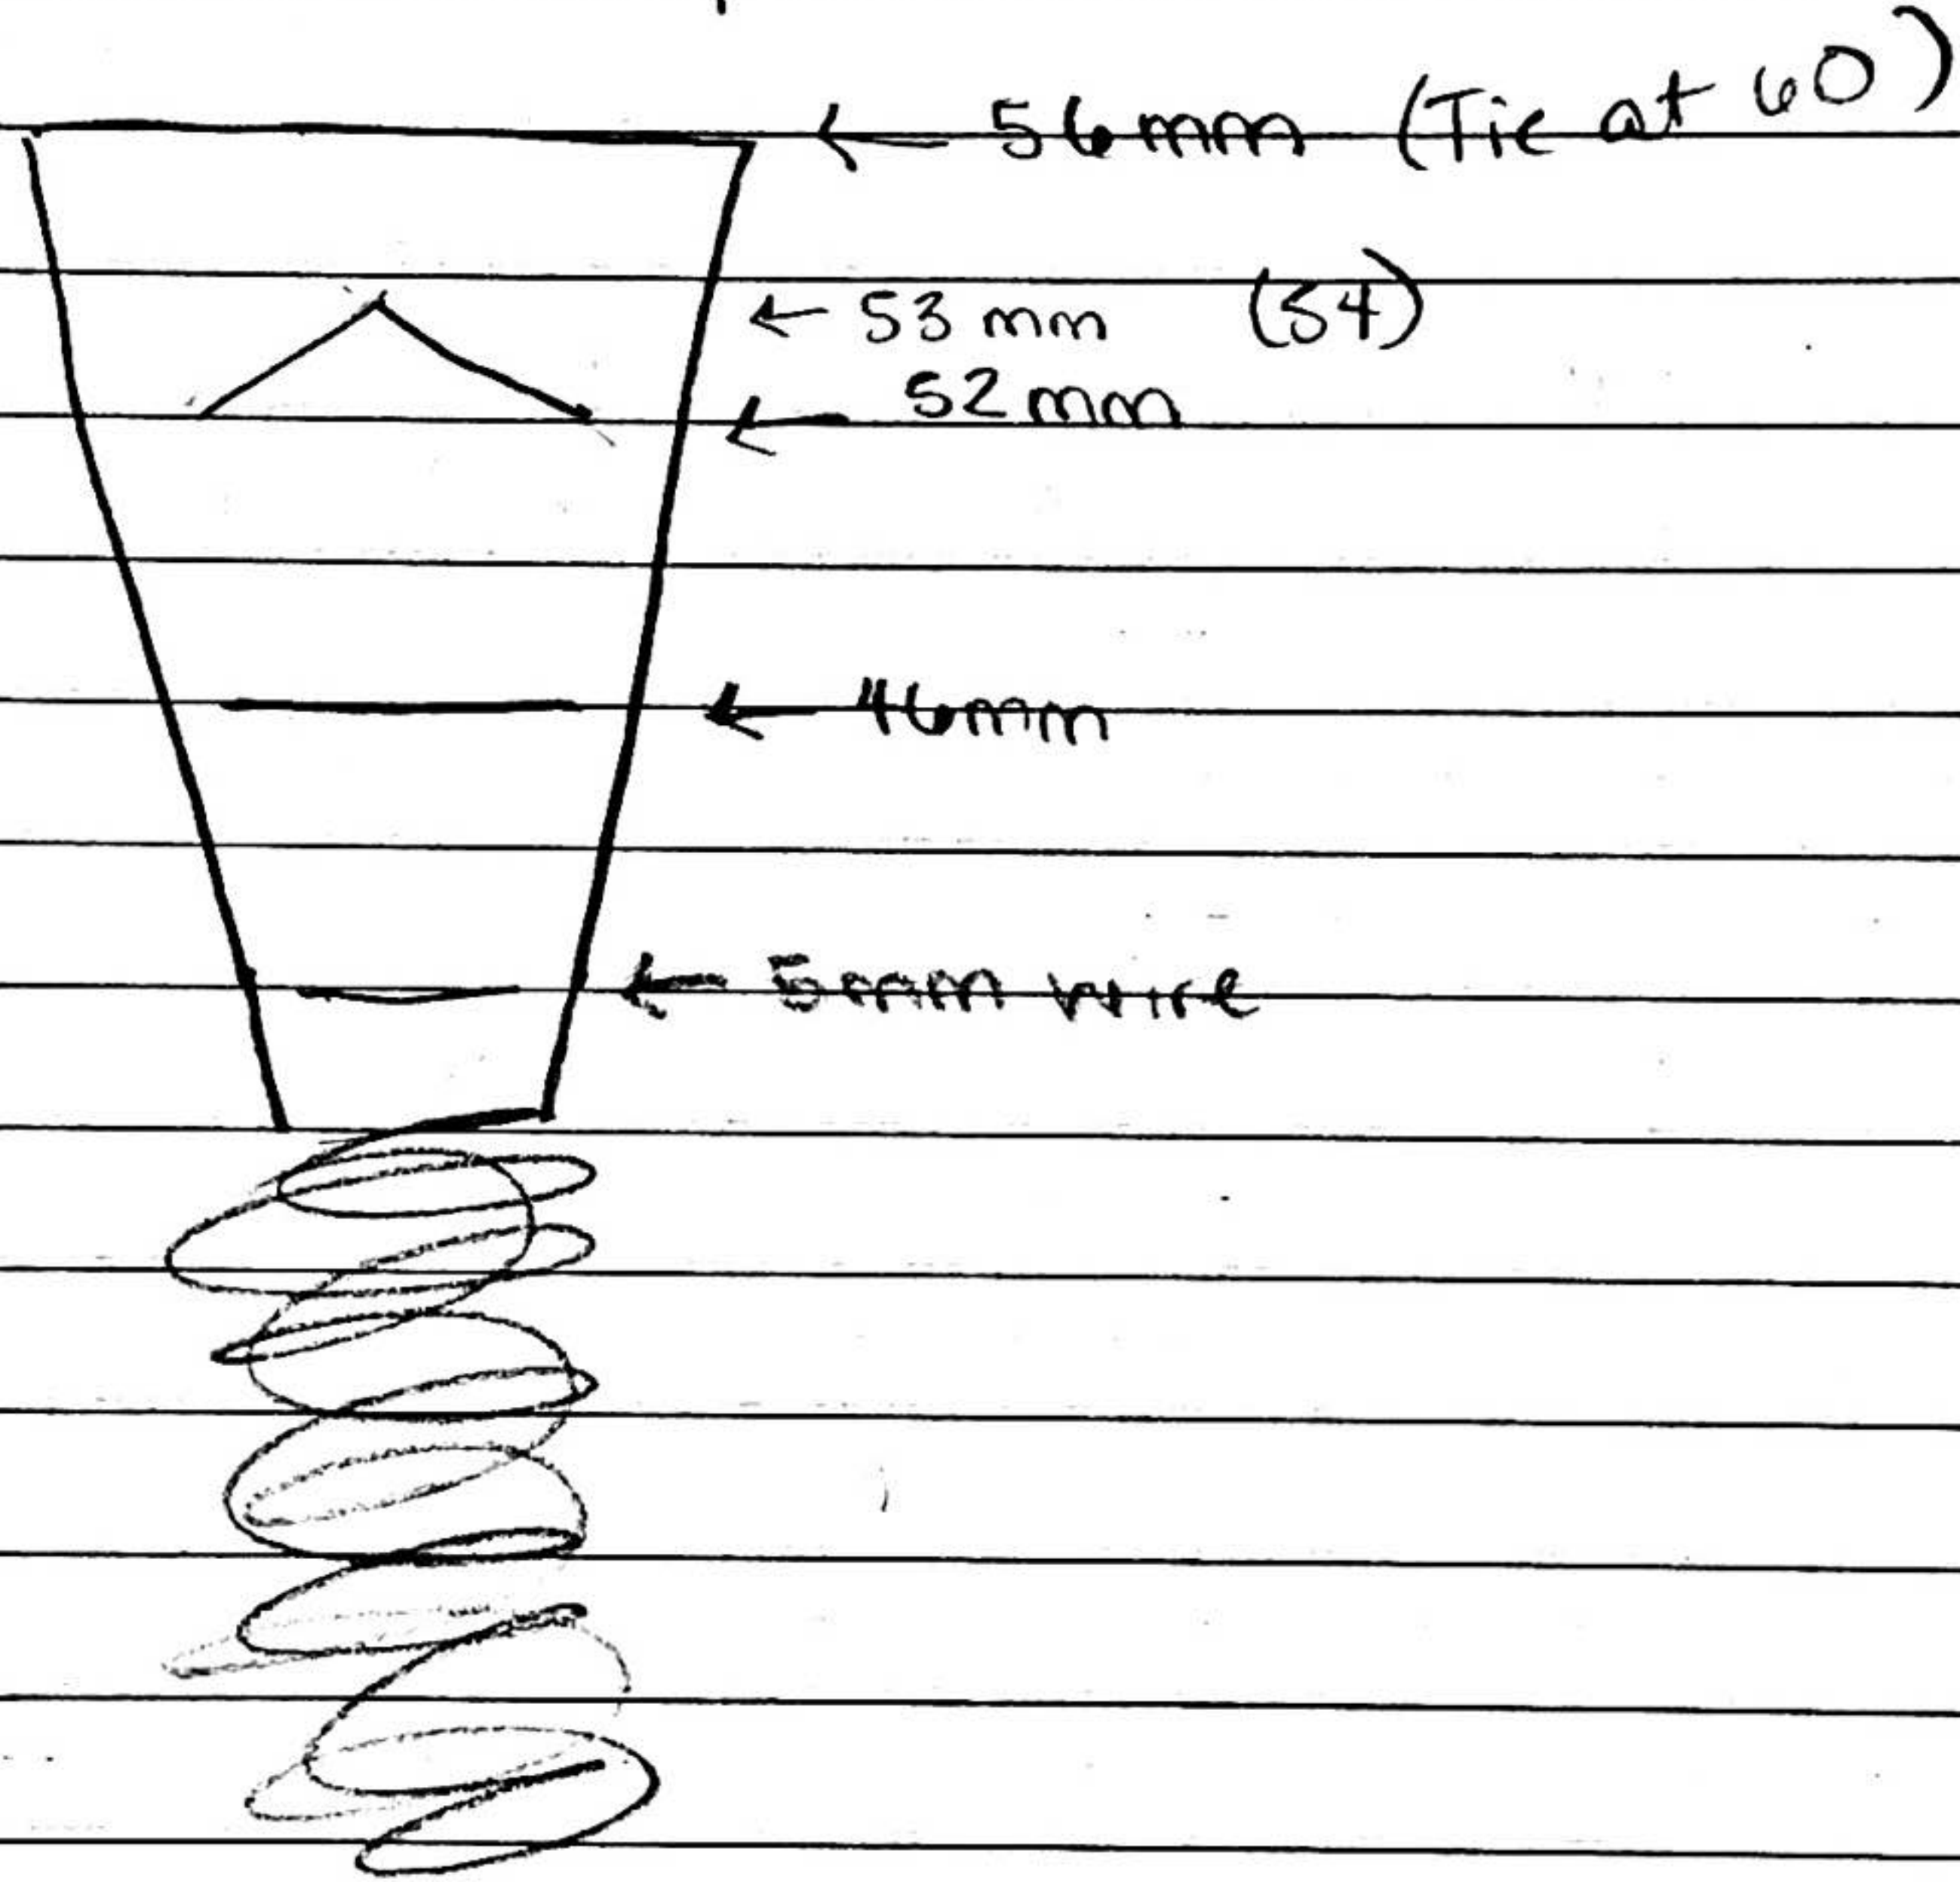 ← 56mm (Tie at 60)
← 53 mm (54)
← 52mm
← 46mm
← 5mm wire